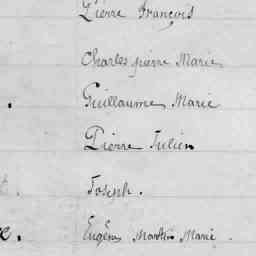 Pierre François
Charles pierre Marie
Guillaume Marie
Pierre Julien
Joseph.
Eugène Marie.